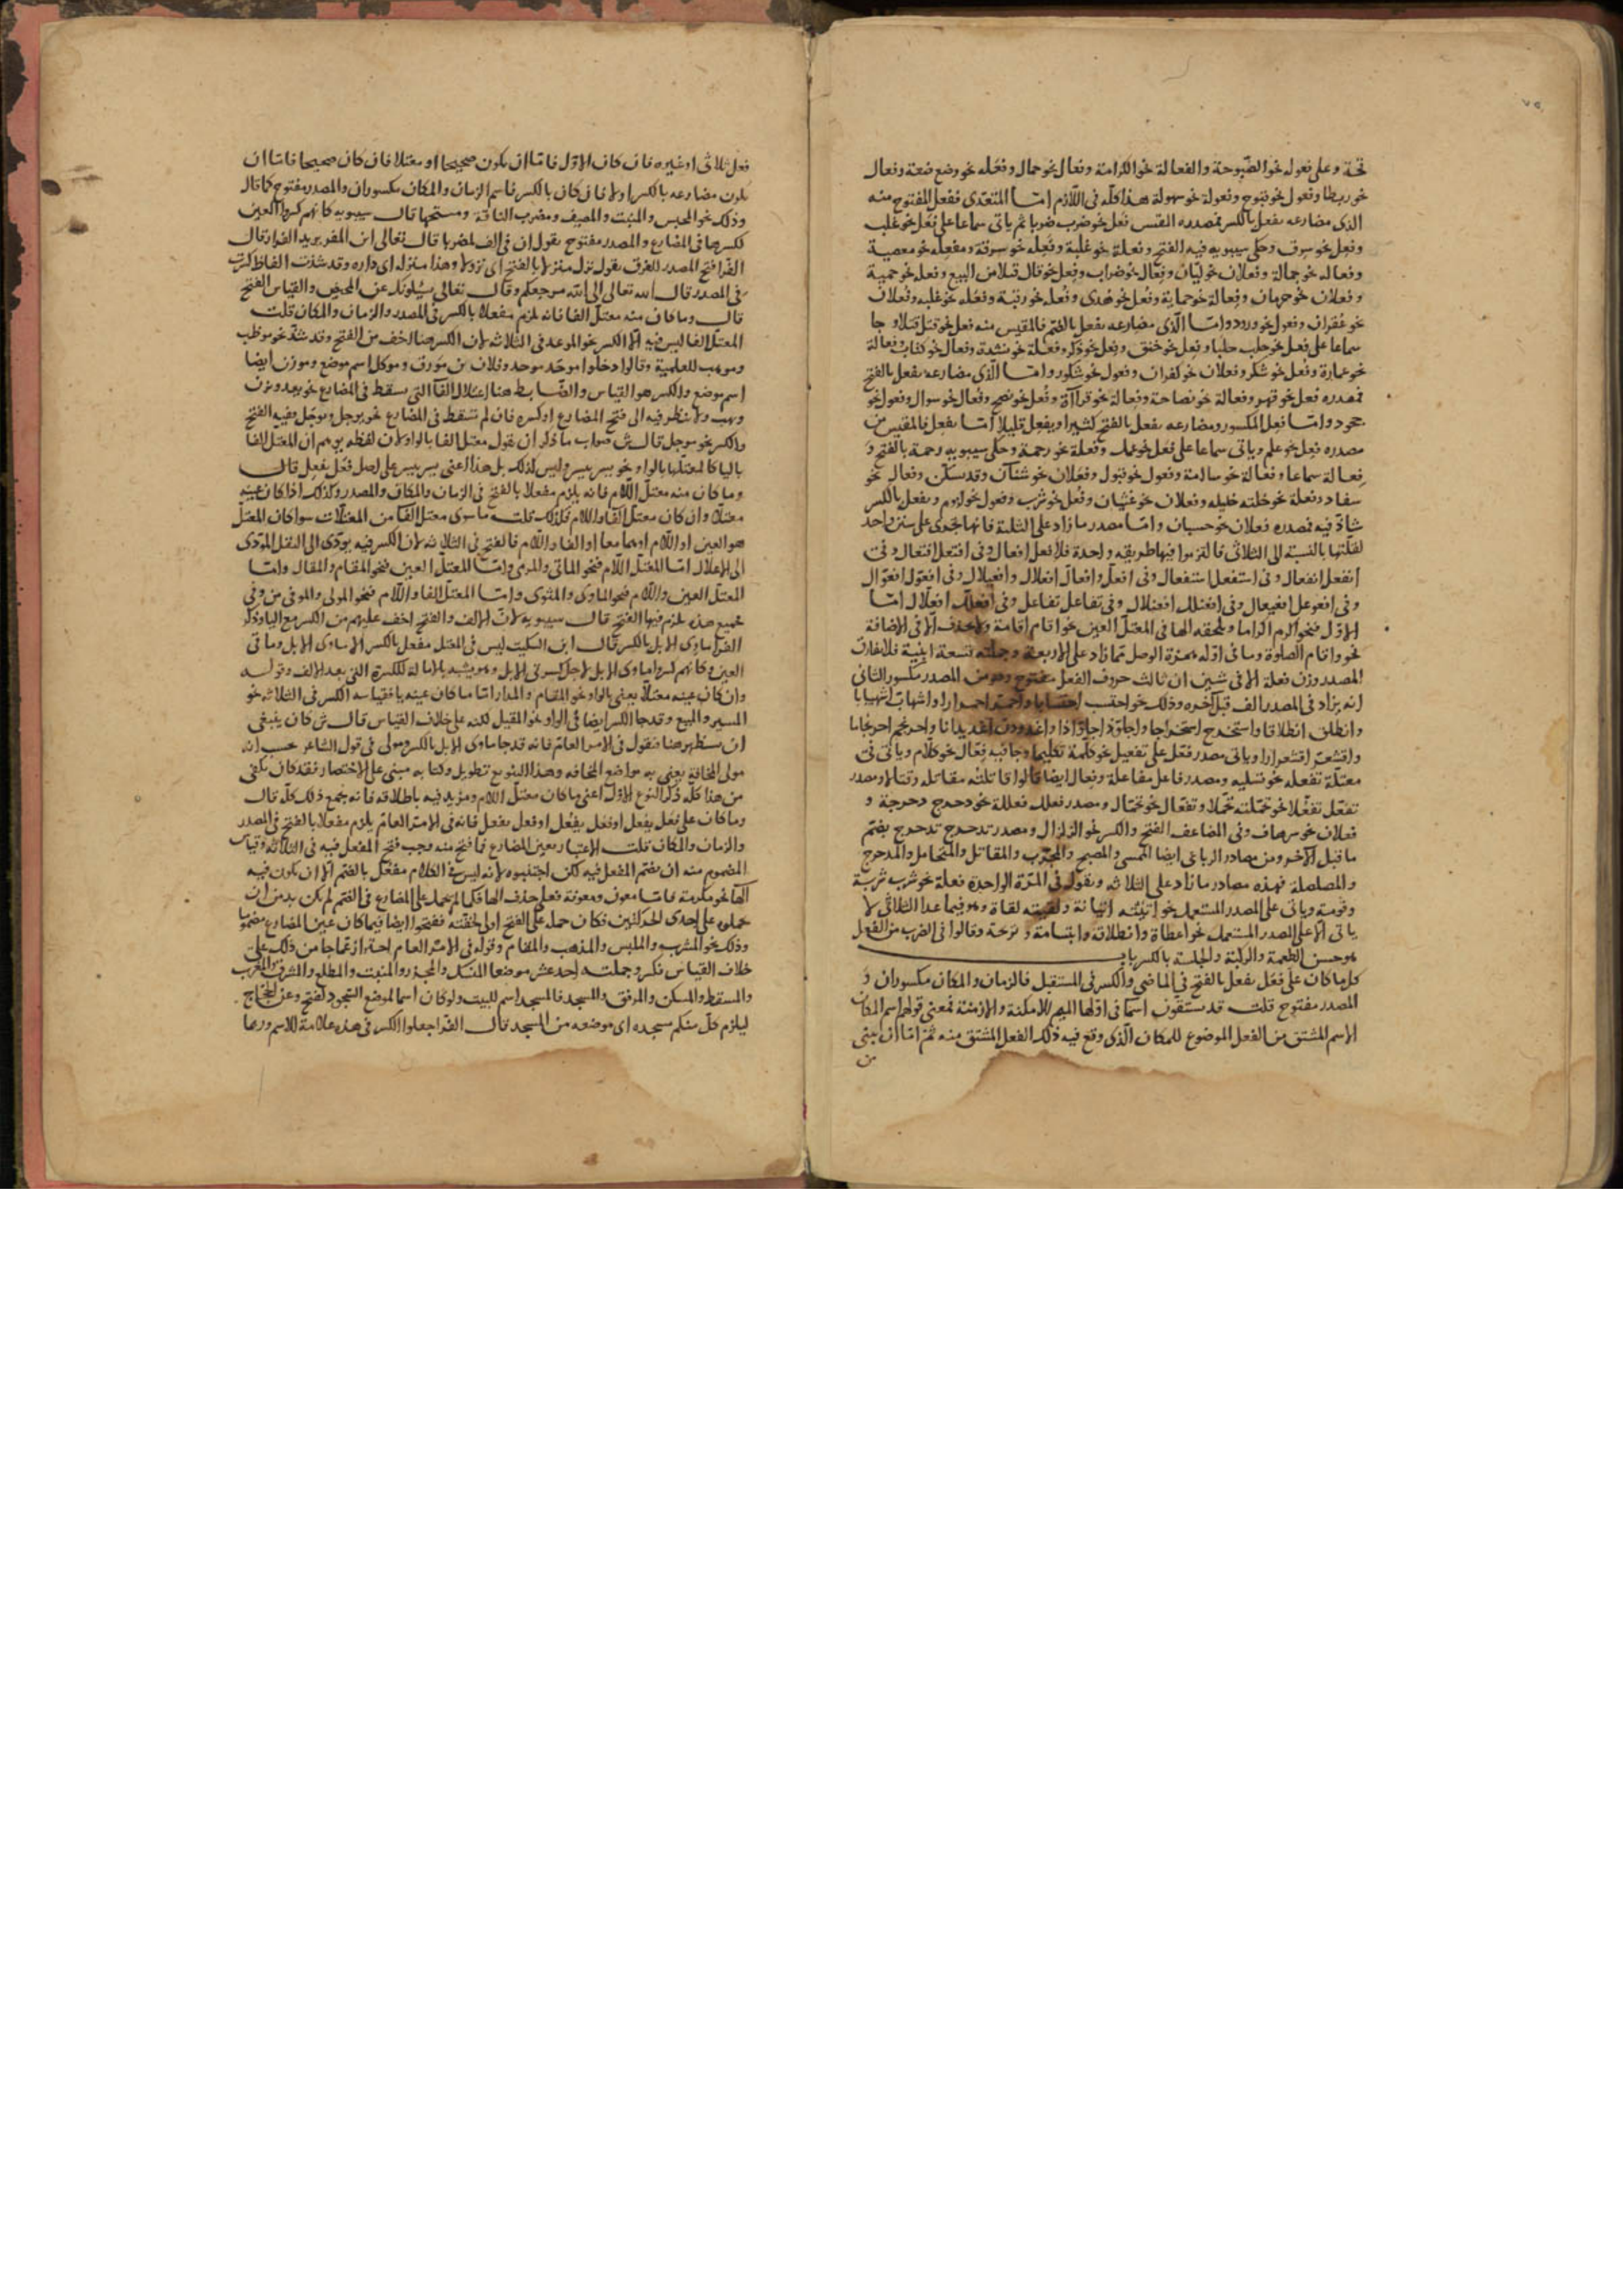 قحة وعلى فعوله نحو الصبوحة والفعالة نحو الكرامة وفعال نحو جمال وفعله نحو وضع ضعة وفعال
نحو ربطا وفعول نحو فتوح وفعولة نحو سهولة هذا كله فى اللازم امّا المتعدى ففعل المفتوح منه
الذى مضارعه يفعل بالكسر فمصدره القيس فعل نحو ضرب ضربا ثم ياتى سماعا على فعل نحو غلب
وفعل نحو سرق وحكى سيبويه فيه الفتح وفعلة نحو غلبة وفعله نحو سرقة ومفعله نحو معصية
وفعاله نحو جمالة وفعلان نحو ليّان وفعال نحو ضراب وفعل نحو قال قيلا من البيع وفعله نحو حمية
وفعلان نحو حرمان وفعالة نحو حماية وفعل نحو هدى وفعله نحو رتبة وفعله نحو غلبه وفعلان
نحو غفران وفعول نحو ورود وامّا الّذى مضارعه يفعل بالضم فالمقيس منه فعل نحو قتل قتلا وجا
سماعا على فعل نحو حلب حلبا وفعل نحو خنق وفعل نحو ذكر وفعلة نحو نشدة وفعال نحو كتاب وفعالة
نحو عمارة وفعل نحو شكر وفعلان نحو كفران وفعول نحو شكور وامّا الّذى مضارعه يفعل بالفتح
فمصدره فعل نحو قهر وفعالة نحو نصاحة وفعالة نحو قراآة وفعل نحو نصح وفعال نحو سوال وفعول نحو
جحود وامّا فعل المكسور ومضارعه يفعل بالفتح كثيرا ويفعل قليلا امّا يفعل فالمقيس من
مصدره فعل نحو علم وياتى سماعا على فعل نحو عمل وفعلة نحو رحمة وحكى سيبويه رحمة بالفتح و
فعالة سماعا وفعالة نحو سالمة وفعول نحو قبول وفعلان نحو شنآن وقد سكن وفعال نحو
سفاد وفعلة نحو خلته خليله وفعلان نحو غشيان وفعل نحو شرب وفعول نحو لزوم ويفعل بالكسر
شاذّ فيه فمصدره فعلان نحو حسبان وامّا مصدر ما زاد على الثلثة فانها تجرى على سنن واحد
لقلّتها بالنسبة الى الثلاثى فالتزموا فيها طريقه واحدة فلافعل افعال وفى افتعل افتعال وفى
انفعل انفعال وفى استفعل استفعال وفى افعلّ وافعالّ افعلال وافعيلال وفى افعوّل افعوّال
وفى افعوعل افعيعال وفى افعنلل افعنلال وفى تفاعل تفاعل وفى افعللّ افعلّال امّا
الاوّل فنحو اكرم اكراما وتلحقه الها فى المعتلّ العين نحو اقام اقامة ولا تحذف الّا فى الاضافة
نحو واقام الصلوة وما فى اوّله همزة الوصل ممّا زاد على الاربعة وجملته تسعة ابنية فلا يفارق
المصدر وزن فعله الا فى شيئين ان ثالث حروف الفعل مفتوح وهو من المصدر مكسور الثانى
انه يزاد فى المصدر الف قبل آخره وذلك نحو احتسب احتسابا واحمرّ احمرارا واشهابّ اشهيبابا
وانطلق انطلاقا واستخرج استخراجا واجلوّذ اجلوّاذا واغدودن اغديدانا واحرنجم احرنجاما
واقشعرّ اقشعرارا وياتى مصدر فعّل على تفعيل نحو كلّمة تكليما وجا فيه فعّال نحو كلّام وياتى فى
معتلّه تفعله نحو تسليه ومصدر فاعل مفاعلة وفعال ايضا قالوا قاتلته مقاتله وقتالا ومصدر
تفعّل تفعّلا نحو تحمّلته تحمّلا وتفعّال نحو تحمّال ومصدر فعلل فعللة نحو دحرج دحرجة و
فعلان نحو سرهاف وفى المضاعف الفتح والكسر نحو الزلزال ومصدر تدحرج تدحرج بضمّ
ما قبل الآخر ومن مصادر الرباعى ايضا الممسى والمصبح والمجرّب والمقاتل والمتحامل والمدحرج
والمصلصلة فهذه مصادر ما زاد على الثلاثة وتقول فى المرّة الواحدة فعلة نحو شرب شربة
وقومة وياتى على المصدر المستعمل نحو اتيته اتيانة ولقيته لقاة وهو فيما عدا الثلاثى لا
ياتى الّا على المصدر المستعمل نحو اعطاة وانطلاقه وابتسامة وترحة وقالوا فى الضرب من الفعل
هو حسن الطعمة والركبة والجلسة بالكسر باب
كل ما كان على فعل يفعل بالفتح فى الماضى والكسر فى المستقبل فالزمان والمكان مكسوران و
المصدر مفتوح قلت قد يشتقون اسما فى اوّلها الميم للامكنة والازمنة فمعنى قولهم اسم المكان
الاسم المشتق من الفعل الموضوع للمكان الّذى وقع فيه ذلك الفعل المشتق منه ثمّ امّا ان يبنى
من
فعل ثلاثى او غيره فان كان الاوّل فامّا ان يكون صحيحا او معتلا فان كان صحيحا فامّا ان
يكون مضارعه بالكسر اولا فان كان بالكسر فاسم الزمان والمكان مكسوران والمصدر مفتوح كما قال
وذلك نحو المحبس والمنبت والمصيف ومضرب الناقة ومستحبها قال سيبويه كانهم كسروا العين
لكسرها فى المضارع والمصدر مفتوح يقول ان فى الف لمضربا قال تعالى اين المفر يريد الفرار قال
الفرا فتح المصدر للفرق يقول نزل منزلا بالفتح اى نزولا وهذا منزله اى داره وقد شذت الفاظ كسرت
فى المصدر قال الله تعالى الى الله مرجعكم وقال تعالى يسئلونك عن المحيض والقياس الفتح
قال وما كان منه معتلّ الفا فانه يلزم مفعلا بالكسر فى المصدر والزمان والمكان قلت
المعتلّ الفا ليس فيه الّا الكسر نحو الموعد فى الثلاثة لان الكسر هنا اخف من الفتح وقد شذّ نحو موظب
وموهب للعلمية وقالوا دخلوا موحد موحد وفلان بن مورق وموكل اسم موضع وموزن ايضا
اسم موضع والكسر هو القياس والضابط هنا اعتلال الفآ التى يسقط فى المضارع نحو يعد ويزن
ويهب ولا ينظر فيه الى فتح المضارع او كسره فان لم تسقط فى المضارع نحو يوجل وموجل ففيه الفتح
والكسر نحو موجل قال ش صواب ما ذكر ان يقول معتل الفا بالواو لان لفظه يوهم ان المعتل الفا
باليا كالمعتلّها بالواو نحو يسر ييسر وليس كذلك بل هذا اعنى يسر ييسر على اصل فعل يفعل قال
وما كان منه معتلّ اللام فانه يلزم مفعلا بالفتح فى الزمان والمكان والمصدر وكذلك اذا كان عينه
معتلّا وان كان معتلّ الفا واللام فكذلك قلت ما سوى معتل الفا من المعتلّات سوا كان المعتلّ
هو العين او اللام او هما معا او الفا واللام فالفتح فى الثلاثة لان الكسر فيه يودّى الى الثقل المودّى
الى الاعلال امّا المعتلّ اللام فنحو الماتى والمرمى وامّا المعتلّ العين فنحو المقام والمقال وامّا
المعتلّ العين واللام فنحو الماوى والمثوى وامّا المعتلّ الفا واللام فنحو المولى والموفى من وفى
جميع هذه يلزم فيها الفتح قال سيبويه لانّ الالف والفتح اخف عليهم من الكسر مع اليا وذكر
الفرا ماوى الابل بالكسر قال ابن السكيت ليس فى المعتل مفعل بالكسر الا ماوى الابل وما قى
العين وكانهم كسروا ماوى الابل لاجل كسرتى الابل وهو يشبه بالامالة للكسرة التى بعد الالف وقوله
وان كان عينه معتلّا يعنى بالواو نحو المقام والمدار امّا ما كان عينه يا فقياسه الكسر فى الثلاثه نحو
المسير والمبيع وقد جا الكسر ايضا فى الواو نحو المقيل لكنه على خلاف القياس قال ش كان ينبغى
ان يستظهر هنا فيقول فى الامر العامّ فانه قد جا ماوى الابل بالكسر ومولى فى قول الشاعر حسب انه
مولى المخافة يعنى به مواضع المخافه وهذا التنويع تطويل وكتابه مبنى على الاختصار فقد كان يكفى
من هذا كلّه ذكر النوع الاوّل اعنى ما كان معتلّ اللام ومزيد فيه باطلاقه فانه يجمع ذلك كلّه قال
وما كان على فعل يفعل او فعل يفعل او فعل يفعل فانه فى الامر العامّ يلزم مفعلا بالفتح فى المصدر
والزمان والمكان قلت الاعتبار بعين المضارع فما فتح منه وجب فتح المفعل فيه فى الثلاثة وقياس
المضموم منه ان يضمّ المفعل فيه لكن اجتنبوه لانه ليس فى الكلام مفعل بالضم الّا ان يكون فيه
الها نحو مكرمة فامّا معون ومعونة فعلى حذف الها فلما لم يحمل على المضارع فى الضم لم يكن بد من ان
حملوه على احدى الحركتين فكان حمله على الفتح اولى لخفّته ففتحوا ايضا فيما كان عين المضارع مضموما
وذلك نحو المشرب والملبس والمذهب والمقام وقوله فى الامر العام احترازا عمّا جا من ذلك على
خلاف القياس نكر وجملته احد عشر موضعا المنسك والمجزر والمنبت والمطلع والمشرق والمغرب
والمسقط والمسكن والمرفق والمسجد فالمسجد اسم للبيت ولو كان اسما لموضع السجود لفتح وعن الحجاج
ليلزم كلّ منكم مسجده اى موضعه من المسجد قال الفرّا جعلوا الكسر فى هذه علامة للاسم وربما